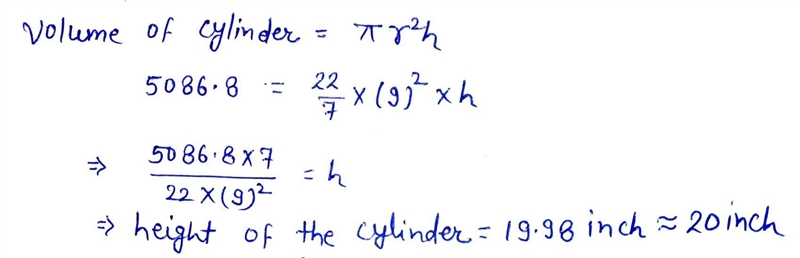 Volume of cylinder = πr²h
5086.8 = 22/7 × (9)² × h
⇒ 5086.8 × 7 / 22 × (9)² = h
⇒ height of the cylinder = 19.98 inch ≈ 20 inch